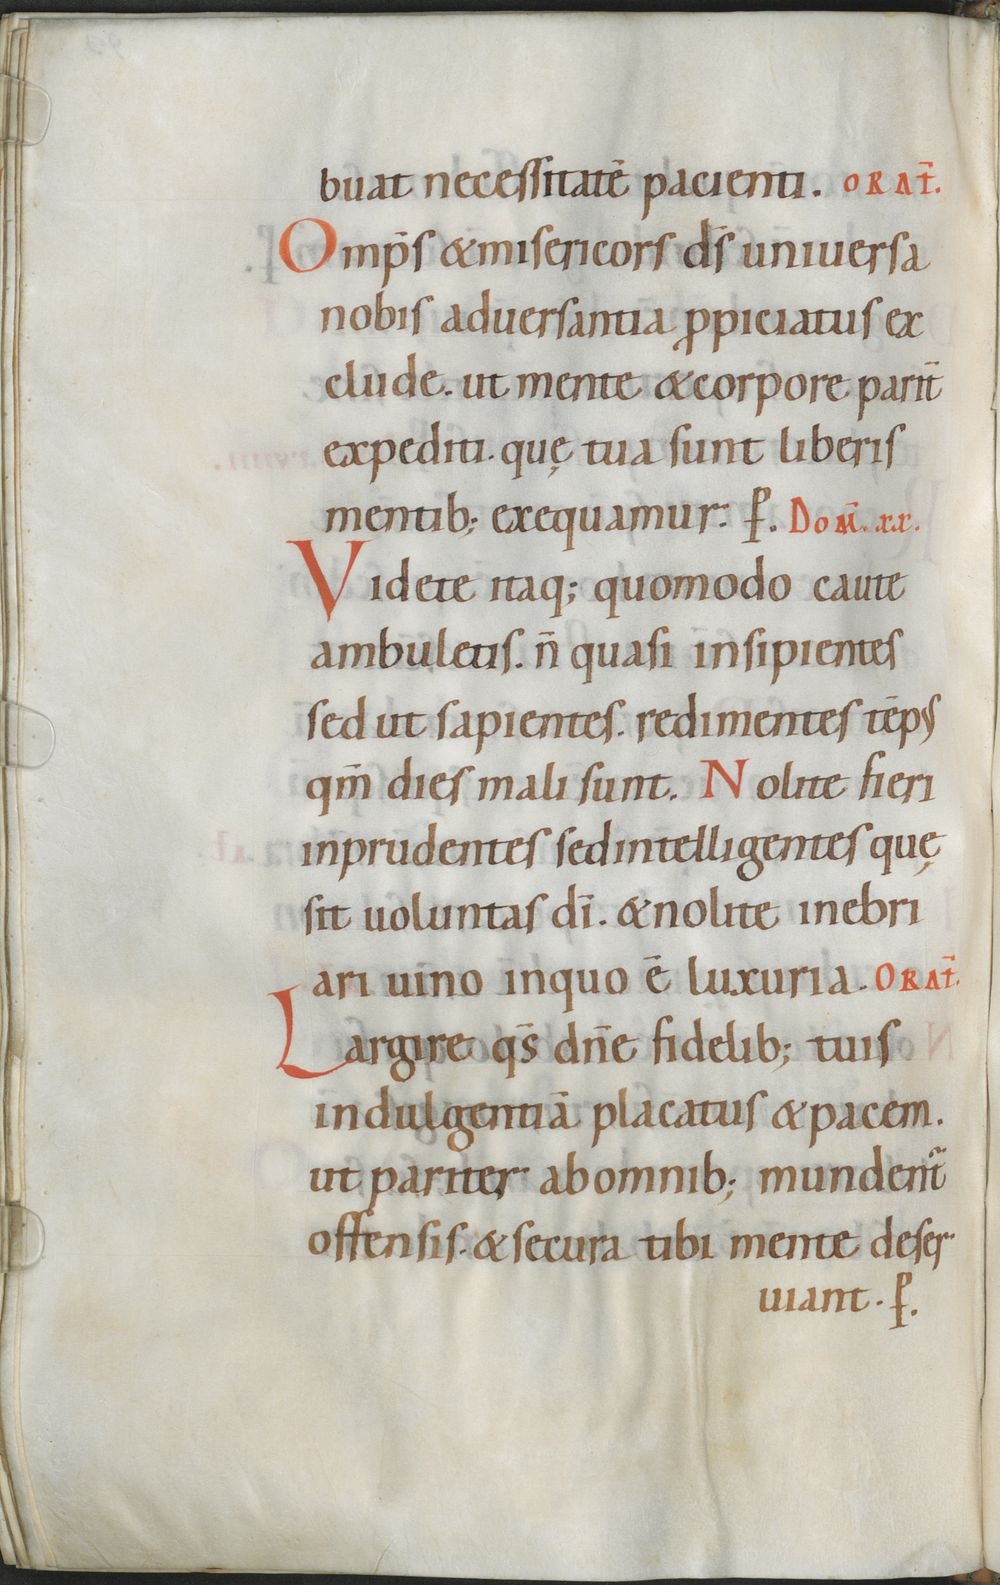 buat necessitatē pacienti. ORAT̄.
Omp̄s & misericors d̄s uniuersa
nobis aduersantia ꝓpiciatus ex
clude. ut mente & corpore parit̄
expediti. quę tua sunt liberis
mentib; exequamur: ꝑ. DOM̄. xx.
Videte itaq; quomodo caute
ambuletis. n̄ quasi insipientes
sed ut sapientes. redimentes tēp9
qm̄ dies mali sunt. Nolite fieri
inprudentes sed intelligentes quę
sit uoluntas dī. & nolite inebri
ari uino in quo ē luxuria. ORAT̄.
Largire q̄s dn̄e fidelib; tuis
indulgentiā placatus & pacem.
ut pariter ab omnib; mundent᷑
offensis. & secura tibi mente deser
uiant. ꝑ.